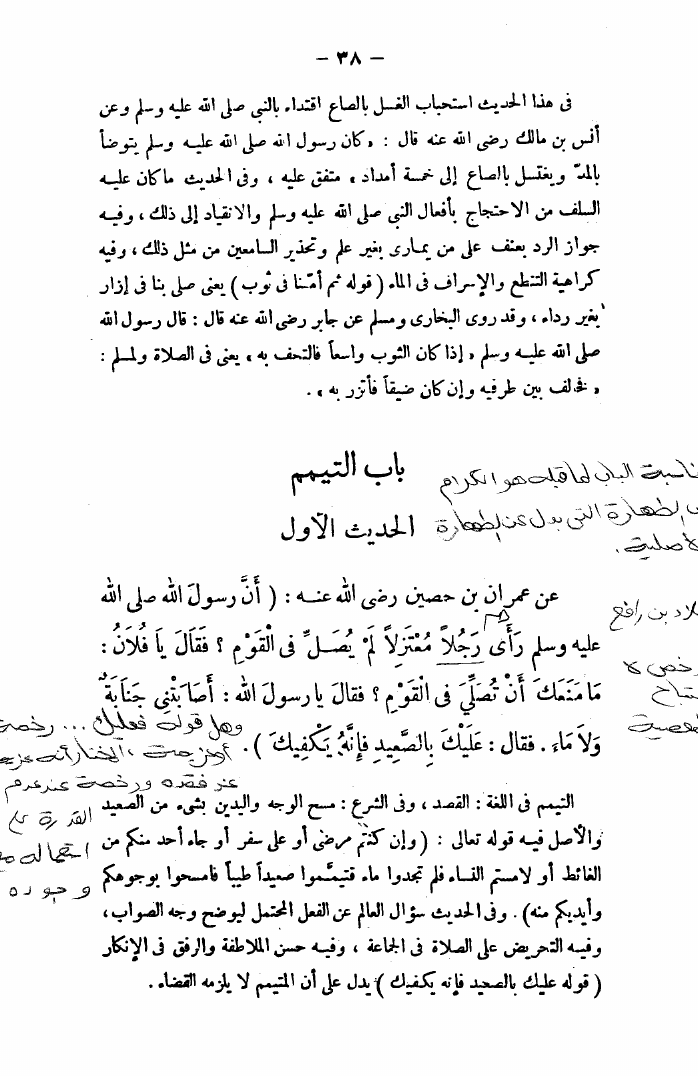 — ٣٨ —
فى هذا الحديث استحباب الغسل بالصاع اقتداء بالنبي صلى الله عليه وسلم وعن
أنس بن مالك رضى الله عنه قال : « كان رسول الله صلى الله عليه وسلم يتوضأ
بالمدّ ويغتسل بالصاع إلى خمسة أمداد » متفق عليه ، وفى الحديث ما كان عليه
السلف من الاحتجاج بأفعال النبي صلى الله عليه وسلم والانقياد إلى ذلك ، وفيه
جواز الرد بعنف على من يمارى بغير علم وتحذير السامعين من مثل ذلك ، وفيه
كراهية التنطع والإسراف فى الماء ( قوله ثم أمّنا فى ثوب ) يعنى صلى بنا فى إزار
بغير رداء ، وقد روى البخارى ومسلم عن جابر رضى الله عنه قال : قال رسول الله
صلى الله عليه وسلم « إذا كان الثوب واسعاً فالتحف به » يعنى فى الصلاة ولمسلم :
« فخالف بين طرفيه وإن كان ضيقاً فأتزر به » .
باب التيمم
الحديث الأول
ناسبة الباب لما قبله هو الكرام
الطهارة التى بدل عن الطهارة
لأصلية .
عن عمران بن حصين رضى الله عنه : ( أَنَّ رسولَ الله صلى الله
عليه وسلم رَأَى رَجُلاً مُعْتَزِلاً لَمْ يُصَلِّ فى الْقَوْمِ ؟ فَقَالَ يا فُلَانُ :
مَا مَنَعَكَ أَنْ تُصَلِّيَ فى الْقَوْمِ ؟ فقالَ يا رسولَ الله : أصَابَتْنِي جَنَابَةٌ
وَلاَ مَاءَ . فقال : عَلَيْكَ بِالصَّعِيدِ فَإِنَّهُ يَكْفِيكَ ) .
لاد بن رافع
رخص لا
وهل قوله فعليك ... رخصة
أو عزيمة ، الختار أنه عزيمة
عند فقده ورخصة عند عدم
القدرة على
استعماله مع
وجوده
التيمم فى اللغة : القصد ، وفى الشرع : مسح الوجه واليدين بشىء من الصعيد
والأصل فيه قوله تعالى : ( وإن كنتم مرضى أو على سفر أو جاء أحد منكم من
الغائط أو لامستم النساء فلم تجدوا ماء فتيمَّموا صعيداً طيباً فامسحوا بوجوهكم
وأيديكم منه) . وفى الحديث سؤال العالم عن الفعل المحتمل ليوضح وجه الصواب ،
وفيه التحريض على الصلاة فى الجماعة ، وفيه حسن الملاطفة والرفق فى الإنكار
( قوله عليك بالصعيد فإنه يكفيك ) يدل على أن المتيمم لا يلزمه القضاء .